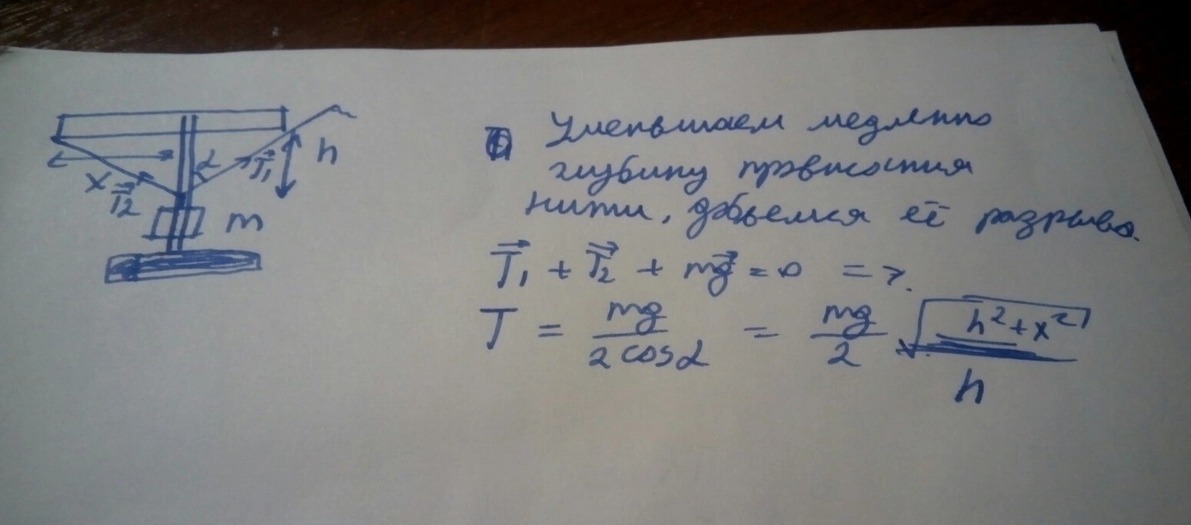 h
α
T⃗₁
x
T⃗₂
m
Уменьшаем медленно
глубину провисания
нити, добьемся её разрыва.
T⃗₁ + T⃗₂ + mg⃗ = 0 =>
T = mg / 2 cosα = mg / 2 √h² + x² / h